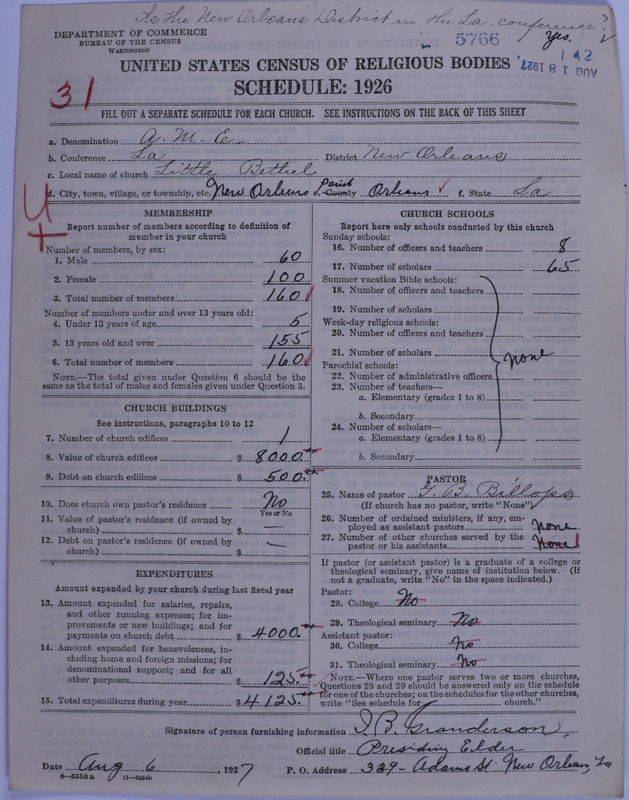 Is the New Orleans District in the La. conference?
Yes.
DEPARTMENT OF COMMERCE
BUREAU OF THE CENSUS
WASHINGTON
5766
AUG 18 1927
UNITED STATES CENSUS OF RELIGIOUS BODIES
SCHEDULE: 1926
31
FILL OUT A SEPARATE SCHEDULE FOR EACH CHURCH. SEE INSTRUCTIONS ON THE BACK OF THIS SHEET
a. Denomination A. M. E.
b. Conference La District New Orleans
c. Local name of church Little Bethel
d. City, town, village, or township, etc. New Orleans e. County Parish Orleans f. State La
U
MEMBERSHIP
Report number of members according to definition of member in your church
Number of members, by sex:
1. Male 60
2. Female 100
3. Total number of members 160
Number of members under and over 13 years old:
4. Under 13 years of age 5
5. 13 years old and over 155
6. Total number of members 160
NOTE.—The total given under Question 6 should be the same as the total of males and females given under Question 3.
CHURCH BUILDINGS
See instructions, paragraphs 10 to 12
7. Number of church edifices 1
8. Value of church edifices $ 8000.
9. Debt on church edifices $ 500.
10. Does church own pastor's residence No
Yes or No
11. Value of pastor's residence (if owned by church) $ —
12. Debt on pastor's residence (if owned by church) $ —
EXPENDITURES
Amount expended by your church during last fiscal year
13. Amount expended for salaries, repairs, and other running expenses; for improvements or new buildings; and for payments on church debt $ 4000.
14. Amount expended for benevolences, including home and foreign missions; for denominational support; and for all other purposes $ 125.
15. Total expenditures during year $ 4125.
CHURCH SCHOOLS
Report here only schools conducted by this church
Sunday schools:
16. Number of officers and teachers 8
17. Number of scholars 65
Summer vacation Bible schools:
18. Number of officers and teachers
19. Number of scholars
Week-day religious schools:
20. Number of officers and teachers
21. Number of scholars
none
Parochial schools:
22. Number of administrative officers
23. Number of teachers—
a. Elementary (grades 1 to 8)
b. Secondary
24. Number of scholars—
a. Elementary (grades 1 to 8)
b. Secondary
PASTOR
25. Name of pastor J. B. Billops
(If church has no pastor, write "None")
26. Number of ordained ministers, if any, employed as assistant pastors none
27. Number of other churches served by the pastor or his assistants none
If pastor (or assistant pastor) is a graduate of a college or theological seminary, give name of institution below. (If not a graduate, write "No" in the space indicated.)
Pastor:
28. College No
29. Theological seminary No
Assistant pastor:
30. College No
31. Theological seminary No
NOTE.—Where one pastor serves two or more churches, Questions 28 and 29 should be answered only on the schedule for one of the churches; on the schedules for the other churches, write "See schedule for church."
Signature of person furnishing information I. B. Granderson,
Official title Presiding Elder
Date Aug 6, 1927 P. O. Address 329- Adams St New Orleans, La
8-5518a 11-9264b